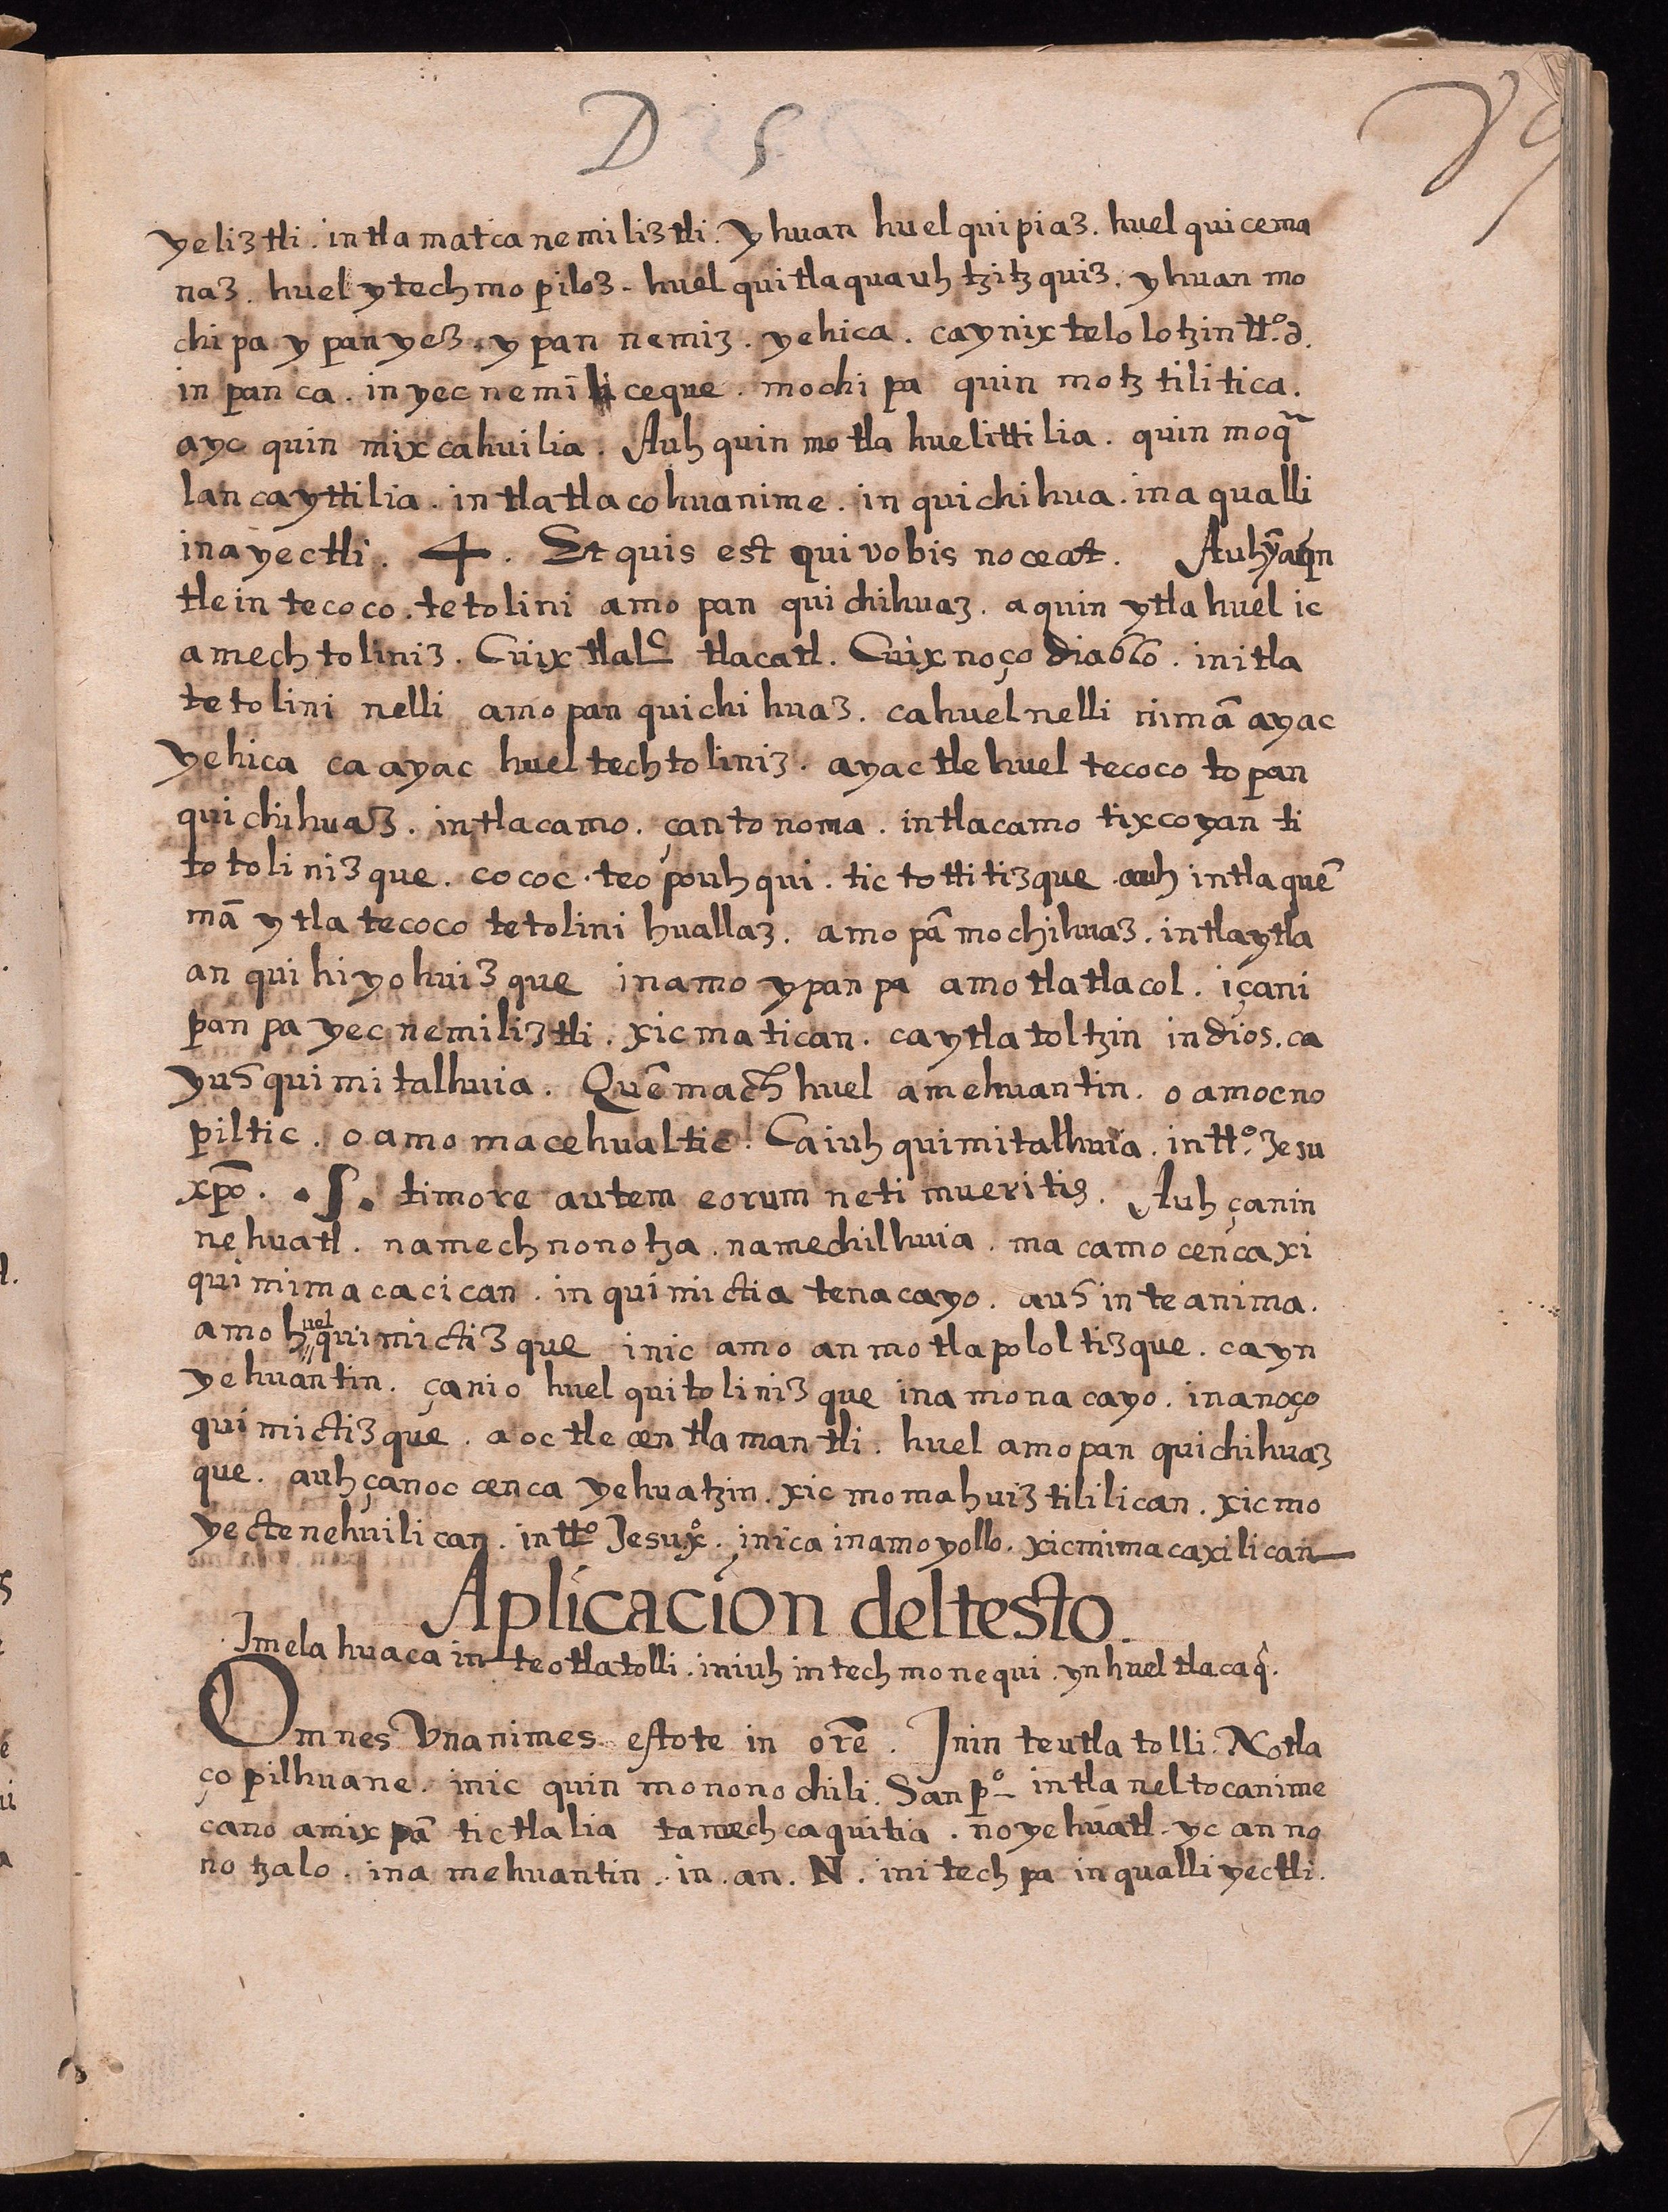 D 5
79
yeliztli. in tlamatca nemiliztli. yhuan huel quipiaz. huel quicema
naz. huel ytech mopiloz. huel quitlaquauhtzitzquiz. yhuan mo
chipa ypan yez. ypan nemiz. yehica. ca ynixtelolotzin tto. d.
inpan ca. in yecnemiliceque. mochipa quinmotztilitica.
ayc quinmixcahuilia. Auh quinmotlahuelittilia. quinmoqua
lancayttilia. in tlatlacohuanime. in quichihua. in aqualli
in ayectli. 4. Et quis est qui vobis noceat. Auh yn aqn
tlein tecoco. tetolini amopan quichihuaz. aquin ytla huel ic
amechtoliniz. Cuix tlalc tlacatl. Cuix noço diablo. in itla
tetolini nelli amopan quichihuaz. ca huel nelli nimã ayac
yehica ca ayac huel techtoliniz. ayac tle huel tecoco topan
quichihuaz. intlacamo. çan tonoma. intlacamo tixcoyan ti
totolinizque. cococ. teopouhqui. tictottitizque. auh intla quẽ
mã ytla tecoco tetolini huallaz. amopã mochihuaz. intla ytla
anquihiyohuizque in amo ypanpa amotlatlacol. içan i
panpa yecnemiliztli. xicmatican. ca ytlatoltzin in dios. ca
yuh quimitalhuia. Quẽmach huel amehuantin. o amocno
piltic. o amomacehualtic! Ca iuh quimitalhuia. in tto. Jesu
xpõ. .5. timore autem eorum ne timueritis. Auh çan in
nehuatl. namechnonotza. namechilhuia. macamo cenca xi
quimimacacican. in quimictia tenacayo. auh in teanima.
amo huel quimictizque inic amo anmotlapololtizque. ca yn
yehuantin. çanio huel quitolinizque in amonacayo. in anoço
quimictizque. aoctle centlamantli. huel amopan quichihuaz
que. auh çanoc cenca yehuatzin. xicmomahuiztililican. xicmo
yectenehuilican. in tto Jesu xo. inica in amoyollo. xicmimacaxilican
Aplicacion del testo.
Jmelahuaca in teotlatolli. iniuh intech monequi. yn huel tlacaq̃.
Omnes Vnanimes estote in orẽ. Jnin teutlatolli. Notla
çopilhuane. inic quinmononochili. San po in tlaneltocanime
ca no amixpã tictlalia tamechcaquitia. no yehuatl. yc anno
notzalo. in amehuantin. in. an. N. in itechpa in qualli yectli.